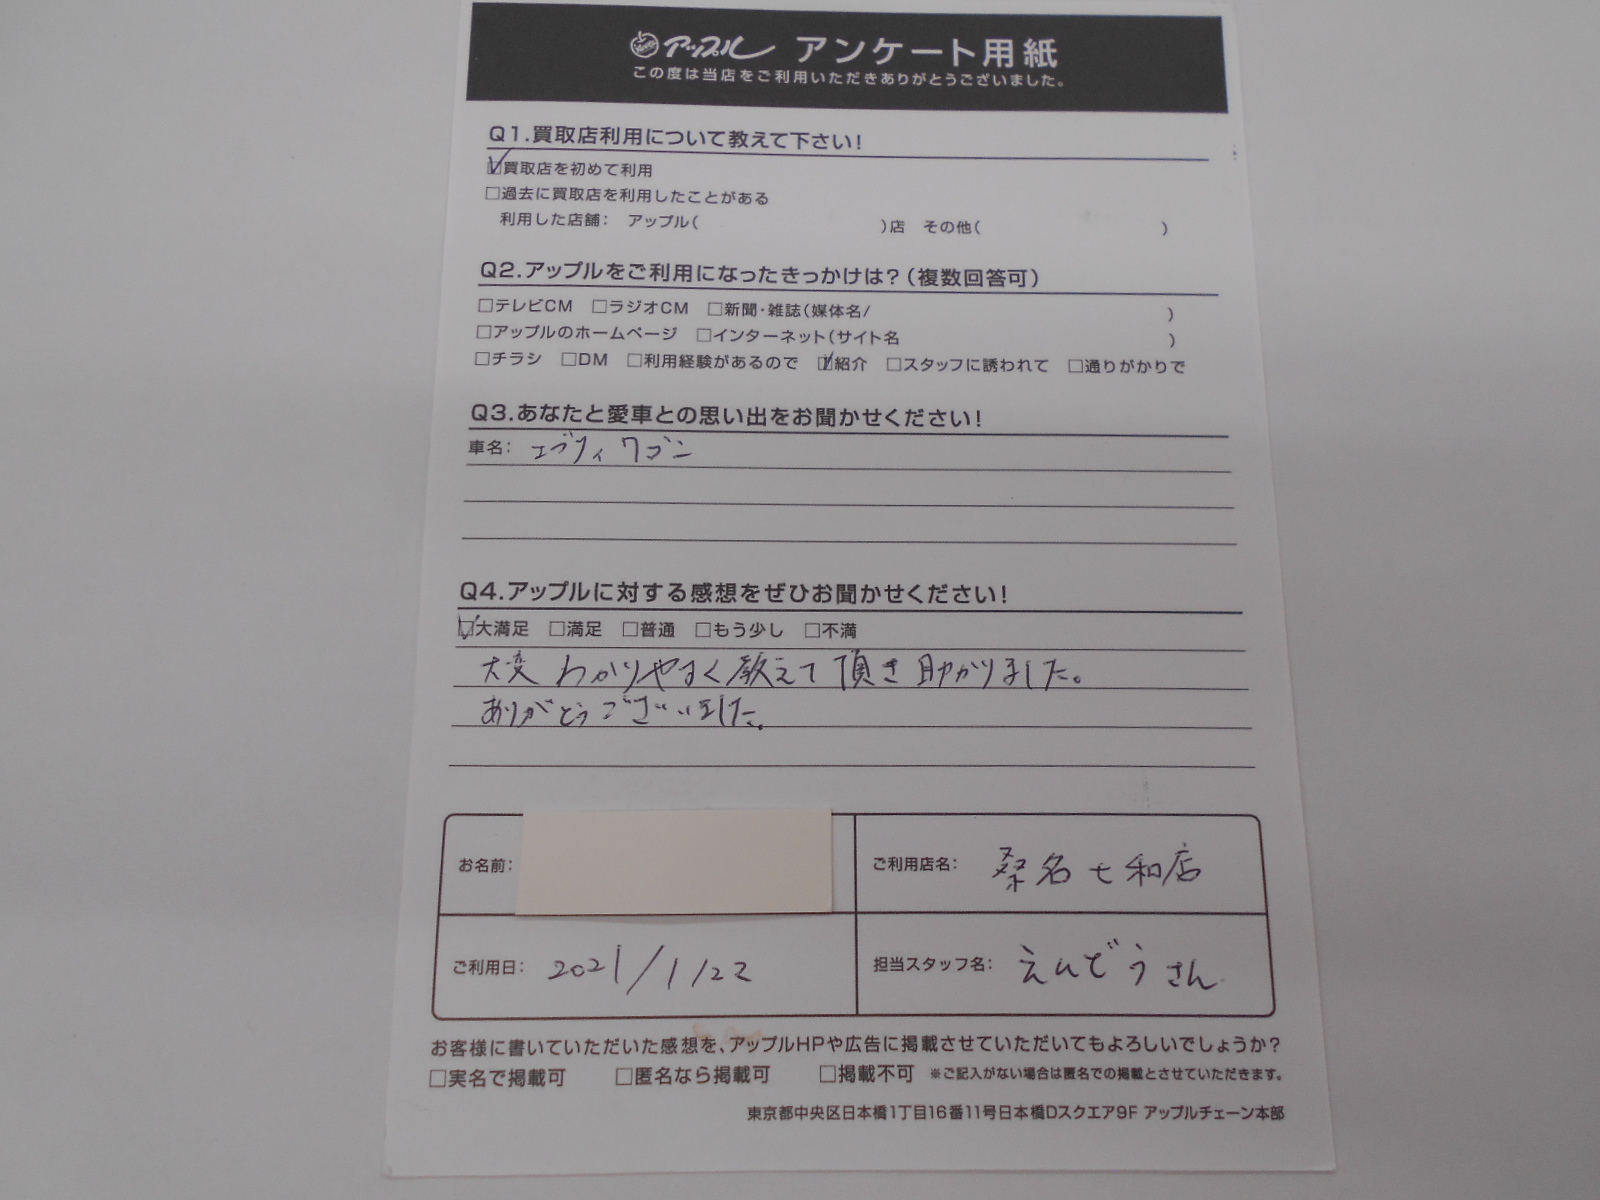 アップル アンケート用紙
この度は当店をご利用いただきありがとうございました。
Q1.買取店利用について教えて下さい!
☑買取店を初めて利用
□過去に買取店を利用したことがある
利用した店舗: アップル( )店 その他( )
Q2.アップルをご利用になったきっかけは?(複数回答可)
□テレビCM □ラジオCM □新聞・雑誌(媒体名/ )
□アップルのホームページ □インターネット(サイト名 )
□チラシ □DM □利用経験があるので ☑紹介 □スタッフに誘われて □通りがかりで
Q3.あなたと愛車との思い出をお聞かせください!
車名: エブリィワゴン
Q4.アップルに対する感想をぜひお聞かせください!
☑大満足 □満足 □普通 □もう少し □不満
大変わかりやすく教えて頂き助かりました。
ありがとうございました。
お名前:
ご利用店名: 桑名七和店
ご利用日: 2021/1/22
担当スタッフ名: えんどうさん
お客様に書いていただいた感想を、アップルHPや広告に掲載させていただいてもよろしいでしょうか?
□実名で掲載可 □匿名なら掲載可 □掲載不可 ※ご記入がない場合は匿名での掲載とさせていただきます。
東京都中央区日本橋1丁目16番11号日本橋Dスクエア9F アップルチェーン本部